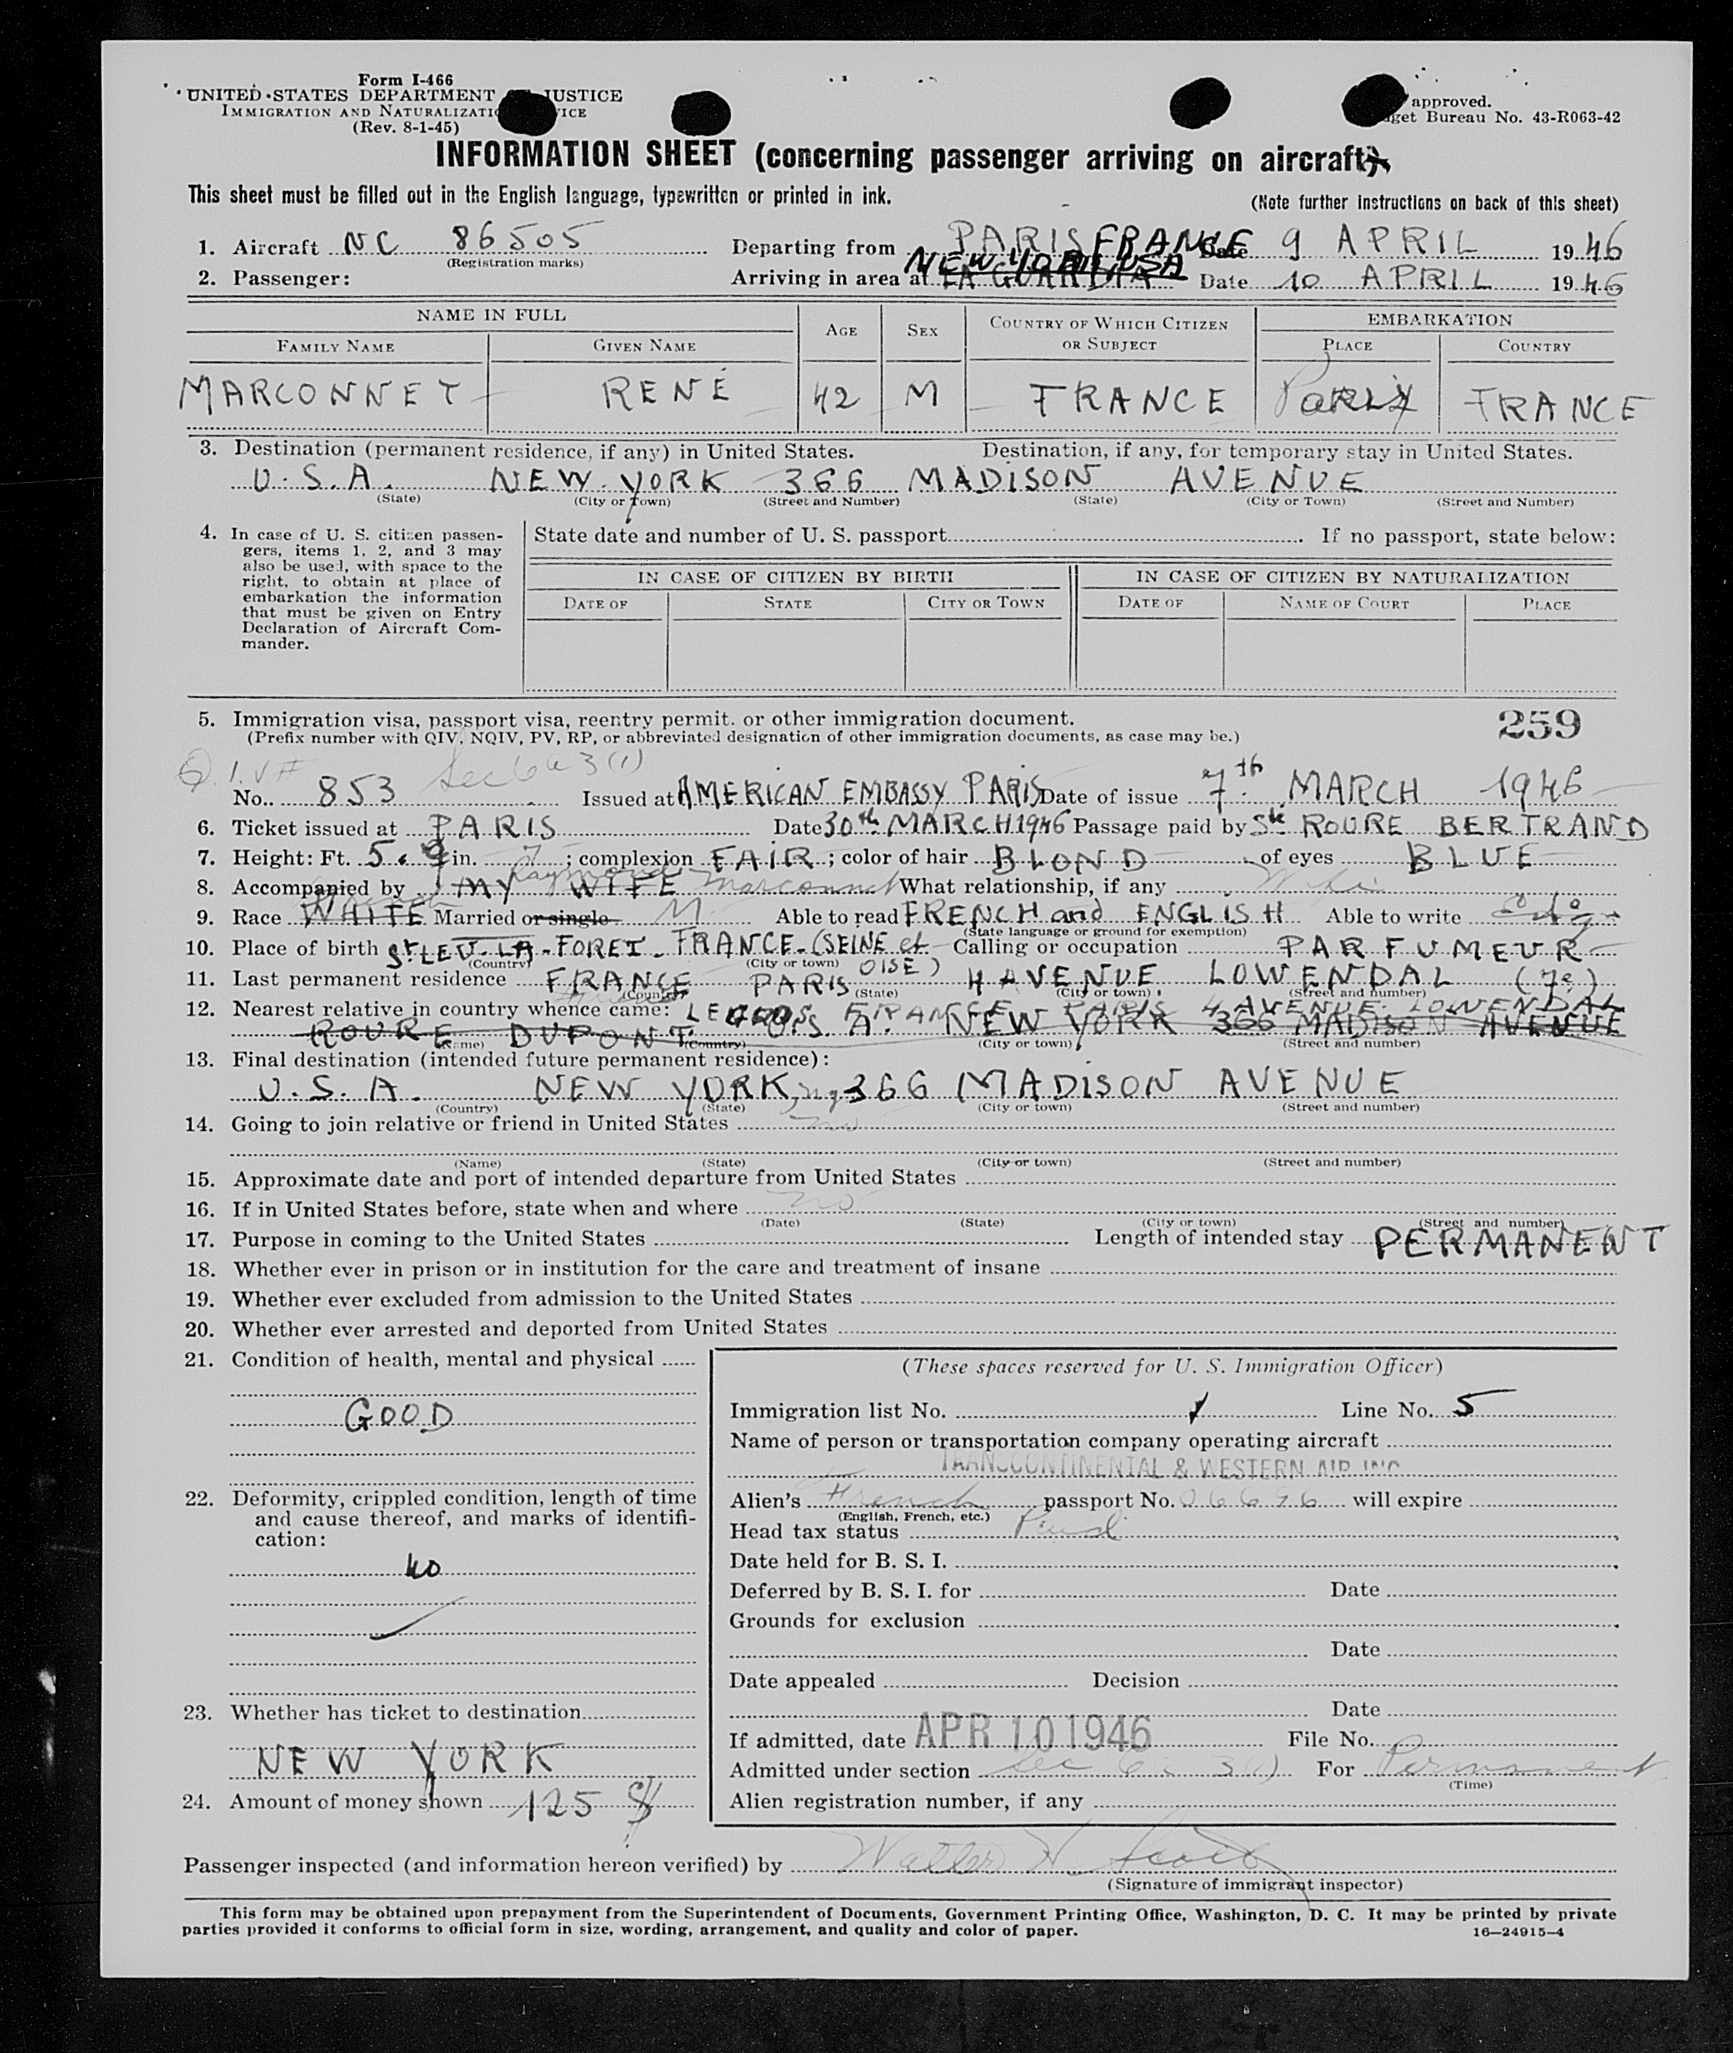 Form I-466
UNITED STATES DEPARTMENT JUSTICE
IMMIGRATION AND
(Rev. 8-1-45)
approved.
Bureau No. 43-R063-42
INFORMATION SHEET (concerning passenger arriving on aircraft)
This sheet must be filled out in the English language, typewritten or printed in ink.
(Note further instructions on back of this sheet)
1. Aircraft NC 86505 Departing from PARIS FRANCE Date 9 APRIL 1946
(Registration marks)
2. Passenger: Arriving in area at NEW YORK USA LA GUARDIA Date 10 APRIL 1946
NAME IN FULL AGE SEX COUNTRY OF WHICH CITIZEN OR SUBJECT EMBARKATION
FAMILY NAME GIVEN NAME PLACE COUNTRY
MARCONNET RENÉ 42 M FRANCE PARIS FRANCE
3. Destination (permanent residence, if any) in United States. Destination, if any, for temporary stay in United States.
U.S.A. NEW YORK 366 MADISON AVENUE
(State) (City or Town) (Street and Number) (State) (City or Town) (Street and Number)
4. In case of U. S. citizen passengers, items 1, 2, and 3 may also be used, with space to the right, to obtain at place of embarkation the information that must be given on Entry Declaration of Aircraft Commander.
State date and number of U. S. passport. If no passport, state below:
IN CASE OF CITIZEN BY BIRTH IN CASE OF CITIZEN BY NATURALIZATION
DATE OF STATE CITY OR TOWN DATE OF NAME OF COURT PLACE
5. Immigration visa, passport visa, reentry permit, or other immigration document.
259
(Prefix number with QIV, NQIV, PV, RP, or abbreviated designation of other immigration documents, as case may be.)
Q.I.V # Sec 6 a 3(1)
No. 853 Issued at AMERICAN EMBASSY PARIS Date of issue 7th MARCH 1946
6. Ticket issued at PARIS Date 30th MARCH 1946 Passage paid by Sté ROURE BERTRAND
7. Height: Ft. 5. in. 7 ; complexion FAIR ; color of hair BLOND of eyes BLUE
8. Accompanied by MY WIFE Raymonde Marconnet What relationship, if any Wife
9. Race French WHITE Married or single M Able to read FRENCH and ENGLISH Able to write
(State language or ground for exemption)
10. Place of birth St LEU-LA-FORET-FRANCE-(SEINE et OISE) Calling or occupation PARFUMEUR
(Country) (City or town)
11. Last permanent residence FRANCE PARIS 4 AVENUE LOWENDAL (7e)
(Country) (State) (City or town) (Street and number)
12. Nearest relative in country whence came: LEGROS FRANCE PARIS 4 AVENUE LOWENDAL
ROURE DUPONT U.S.A. NEW YORK 366 MADISON AVENUE
(Name) (Country) (City or town) (Street and number)
13. Final destination (intended future permanent residence):
U.S.A. NEW YORK, N.Y. 366 MADISON AVENUE
(Country) (State) (City or town) (Street and number)
14. Going to join relative or friend in United States no
(Name) (State) (City or town) (Street and number)
15. Approximate date and port of intended departure from United States
16. If in United States before, state when and where no
(Date) (State) (City or town) (Street and number)
17. Purpose in coming to the United States Length of intended stay PERMANENT
18. Whether ever in prison or in institution for the care and treatment of insane
19. Whether ever excluded from admission to the United States
20. Whether ever arrested and deported from United States
21. Condition of health, mental and physical
GOOD
22. Deformity, crippled condition, length of time and cause thereof, and marks of identification:
NO
23. Whether has ticket to destination
NEW YORK
24. Amount of money shown 125 $
(These spaces reserved for U. S. Immigration Officer)
Immigration list No. 1 Line No. 5
Name of person or transportation company operating aircraft
TRANSCONTINENTAL & WESTERN AIR INC
Alien's French passport No. 06696 will expire
(English, French, etc.)
Head tax status Paid
Date held for B. S. I.
Deferred by B. S. I. for Date
Grounds for exclusion
Date
Date appealed Decision
Date
If admitted, date APR 10 1946 File No.
Admitted under section Sec 6 a 3(1) For Permanent
(Time)
Alien registration number, if any
Passenger inspected (and information hereon verified) by Walter H. Scott
(Signature of immigrant inspector)
This form may be obtained upon prepayment from the Superintendent of Documents, Government Printing Office, Washington, D. C. It may be printed by private
parties provided it conforms to official form in size, wording, arrangement, and quality and color of paper.
16—24915-4